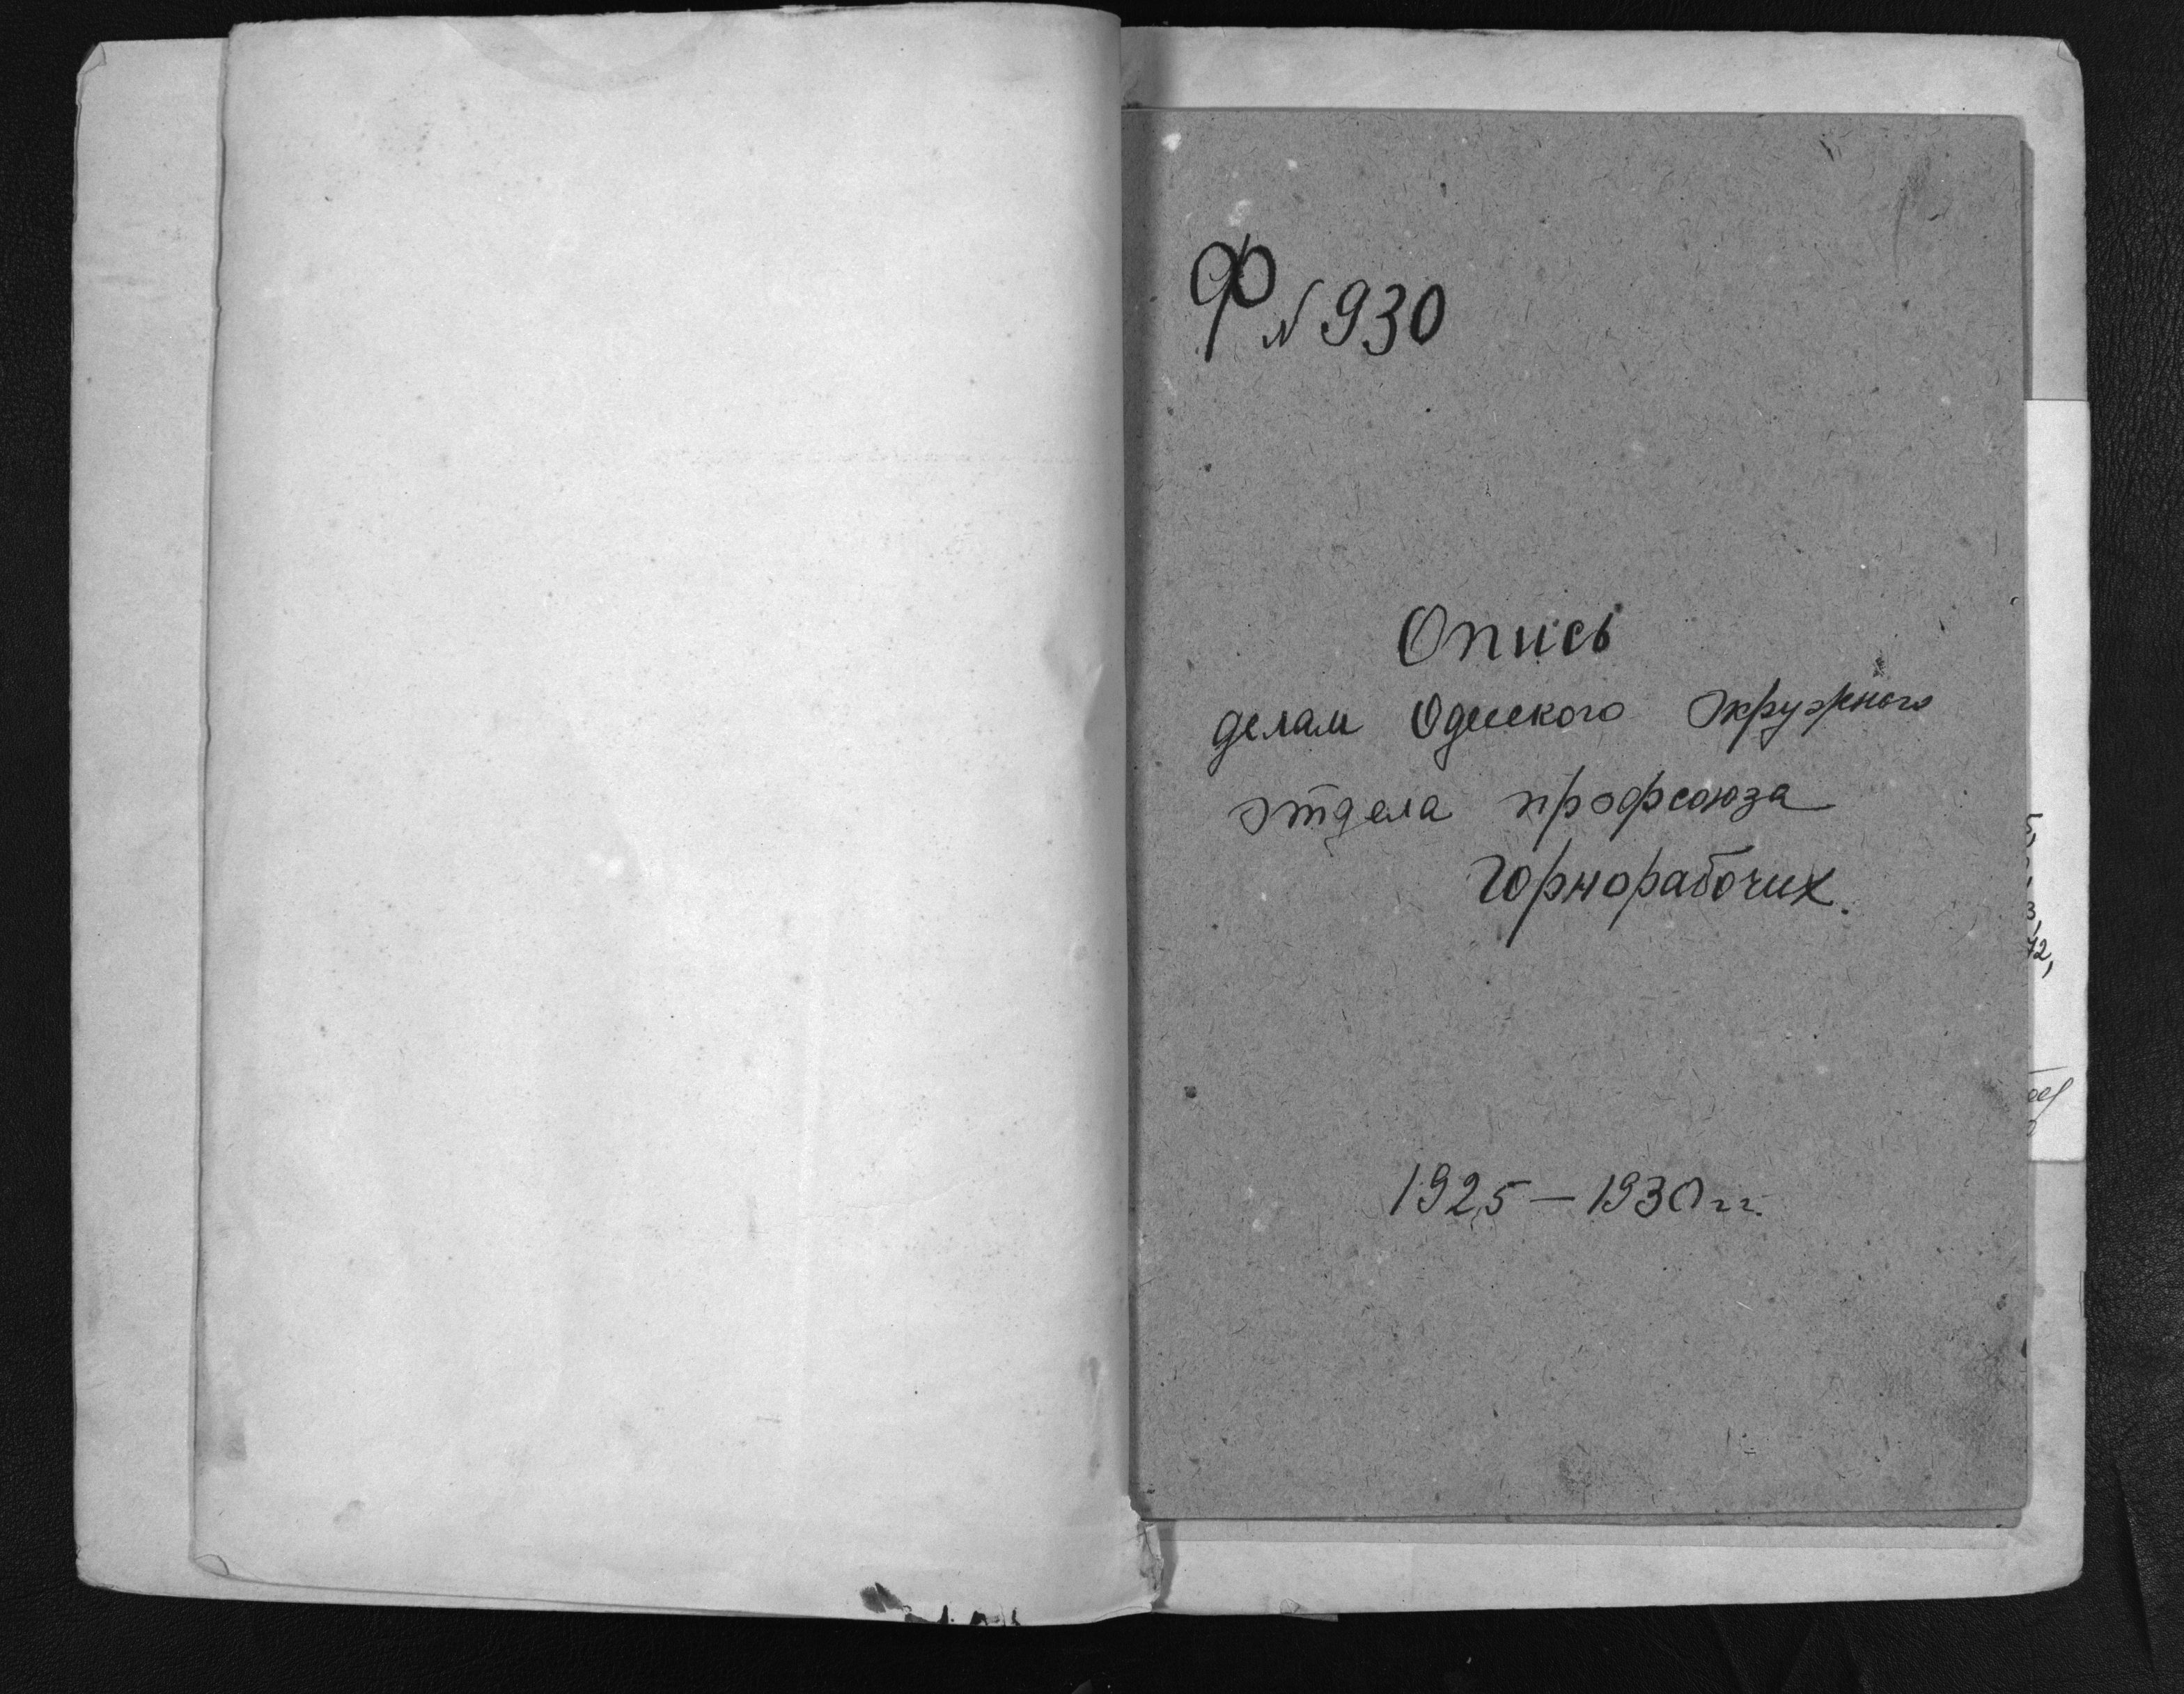 Ф N 930
Опись
делам Одесского Окружного
отдела профсоюза
Горнорабочих.
1925 – 1930 гг.